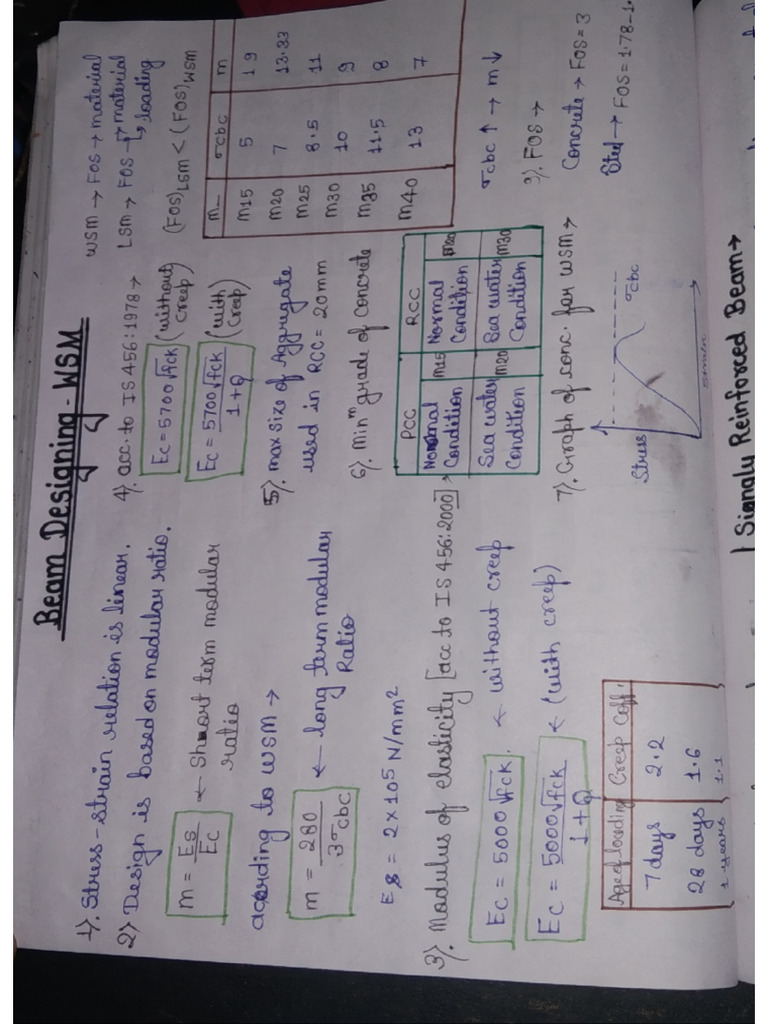 Beam Designing - WSM
1). Stress-strain relation is linear.
2) Design is based on modular ratio.
m = Es/Ec ← Short term modular ratio
acording to WSM →
m = 280/3σcbc ← long term modular Ratio
Es = 2×10⁵ N/mm²
3). Modulus of elasticity [acc to IS 456:2000] →
Ec = 5000√fck. ← without creep
Ec = 5000√fck/1+θ ← (with creep)
Age of loading | Creep Coff.
7 days | 2.2
28 days | 1.6
1 years | 1.1
4). acc. to IS 456:1978 →
Ec = 5700√fck (without creep)
Ec = 5700√fck/1+θ (with creep)
5). max size of Aggregate
used in RCC = 20mm
6). Minᵐ grade of Concrete
PCC | RCC
Normal Condition | M15 | Normal Condition | M20
Sea water Condition | M20 | Sea water Condition | M30
7). Graph of conc. for WSM →
Stress
σcbc
strain
WSM → FOS → material
LSM → FOS → material
↳ loading
(FOS)LSM < (FOS)WSM
M_ | σcbc | m
M15 | 5 | 19
M20 | 7 | 13.33
M25 | 8.5 | 11
M30 | 10 | 9
M35 | 11.5 | 8
M40 | 13 | 7
σcbc ↑ → m ↓
3). FOS →
Concrete → FOS = 3
Steel → FOS = 1.78-1.
Signgly Reinforced Beam →